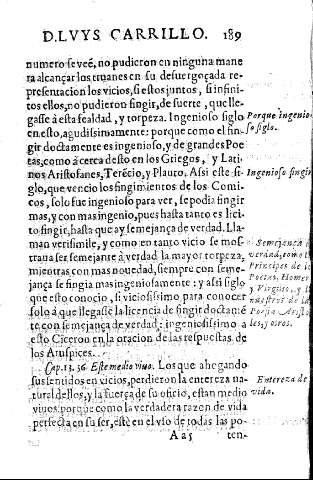 D. LVYS CARRILLO. 189
numero se veè, no pudieron en ninguna mane
ra alcançar los truanes en su desuergoçada re-
presentacion los vicios, si estos juntos, si infini-
tos ellos, no pudieron fingir, de suerte, que lle-
gasse à esta fealdad, y torpeza. Ingenioso siglo
en esto, agudissimamente: porque como el fin-
gir doctamente es ingenioso, y de grandes Poe-
tas, como à cerca desto en los Griegos, y Lati-
nos Aristofanes, Terẽcio, y Plauto. Assi este si-
glo, que vencio los fingimientos de los Comi-
cos, solo fue ingenioso para ver, se podia fingir
mas, y con mas ingenio, pues hasta tanto es lici-
to fingir, hasta que ay semejança de verdad. Lla-
man verisimile, y como en tanto vicio se mos-
traua ser semejante à verdad la mayor torpeza,
mientras con mas nouedad, siempre con seme-
jança se fingia mas ingeniosamente: y assi siglo
que esto conocio, si viciosissimo para conocer
solo à que llegasse la licencia de fingir doctamẽ-
te con semejança de verdad: ingeniosissimo a
esto Ciceron en la oracion de las respuestas de
los Aruspices.
Cap. 13. 36. Este medio viuo. Los que ahegando
sus sentidos en vicios, perdieron la entereza na-
tural dellos, y la fuerça de su oficio, estan medio
viuos, porque como la verdadera razon de vida
perfecta en su ser, estè en el vso de todas las po-
Aa 5 ten-
Porque ingenio-
so siglo.
Ingenioso fingir
Semejança d
verdad, como l
Principes de lo
Poetas, Homer
y Virgilio, y
nuestros de la
Poesia Aristo
les, y otros.
Entereza de
vida.